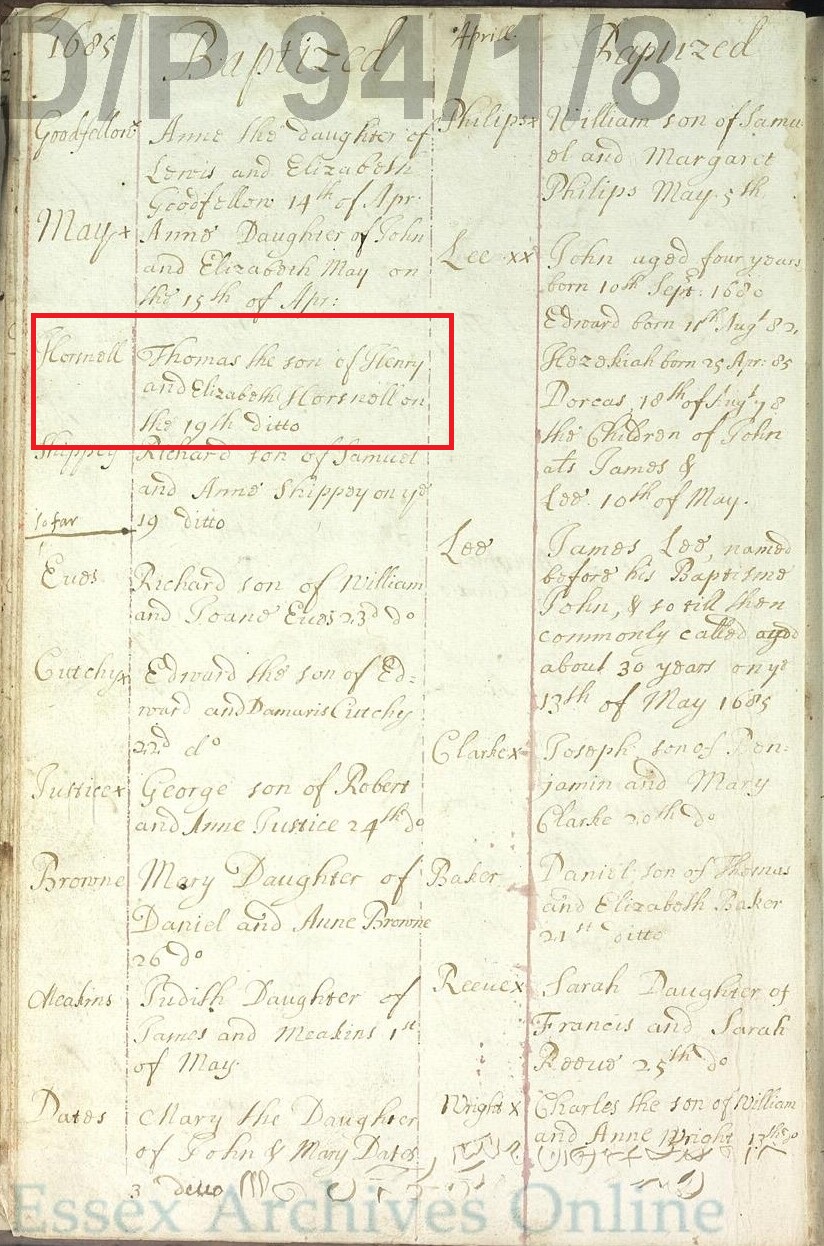 D/P 94/1/8
1685 Baptized
Goodfellow Anne the daughter of
Lewis and Elizabeth
Goodfellow 14th of Apr:
May x Anne Daughter of John
and Elizabeth May on
the 15th of Apr:
Horsnell Thomas the son of Henry
and Elizabeth Horsnell on
the 19th ditto
Shippey Richard son of Samuel
and Anne Shippey on ye
so far 19 ditto
Eves Richard son of William
and Joane Eves 23d do
Cutchy x Edward the son of Ed=
ward and Damaris Cutchy
22d do
Justice x George son of Robert
and Anne Justice 24th do
Browne Mary Daughter of
Daniel and Anne Browne
26 do
Meakins Judith Daughter of
James and Meakins 1st
of May
Dates Mary the Daughter
of John & Mary Dates
3 ditto
Aprill Baptized
Philips x William son of Samu
el and Margaret
Philips May 5th
Lee xx John aged four years
born 10th Sept: 1680
Edward born 11th Augt 82
Hezekiah born 25 Apr: 85
Dorcas 18th of Augt 78
the Children of John
als James &
Lee 10th of May.
Lee James Lee, named
before his Baptisme
John, & so till then
commonly called aged
about 30 years on ye
13th of May 1685
Clarke x Joseph son of Ben=
jamin and Mary
Clarke 20th do
Baker Daniel son of Thomas
and Elizabeth Baker
21st ditto
Reeve x Sarah Daughter of
Francis and Sarah
Reeve 25th do
Wright x Charles the son of William
and Anne Wright 17th do
Essex Archives Online